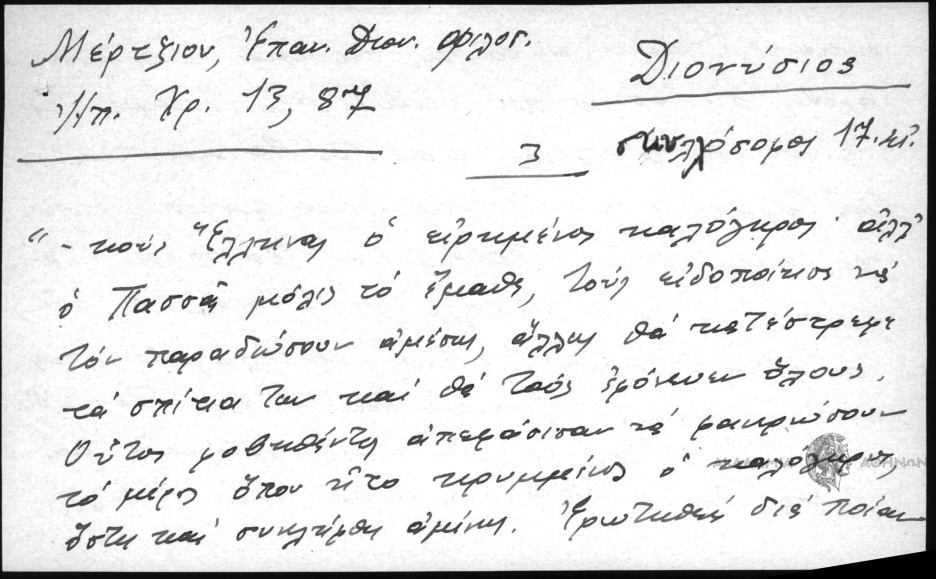 Μέρτζιου, Ἐπαν. Διον. Φιλοσ.
Ἠπ. Χρ. 13, 87
Διονύσιος
3 σκυλόσοφος 17. αἰ.
"- τούς Ἕλληνας ὁ εἰρημένος καλόγηρος ἀλλ'
ὁ Πασσᾶς μόλις τό ἔμαθε, τούς εἰδοποίησε νά
τόν παραδώσουν ἀμέσως, ἄλλως θά κατέστρεφε
τά σπίτια των καί θά τούς ἐφόνευεν ὅλους.
Οὗτοι φοβηθέντες ἀπεφάσισαν νά φανερώσουν
τό μέρος ὅπου ἦτο κρυμμένος ὁ καλόγηρος
ὅστις καί συνελήφθη ἀμέσως. Ἐρωτηθείς διά ποίαν
ΑΘΗΝΩΝ